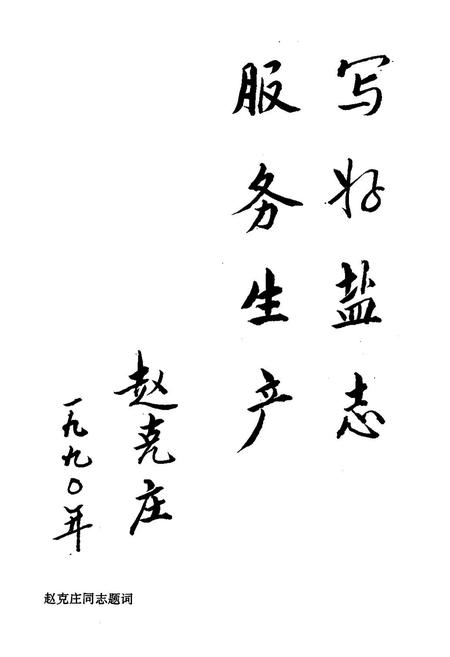 写好盐志
服务生产
赵克庄
一九九〇年
赵克庄同志题词